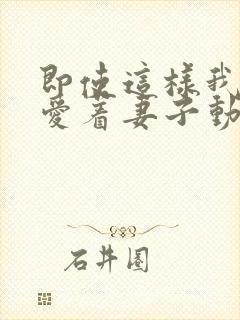 即使這樣我
愛着妻子動
石井圈